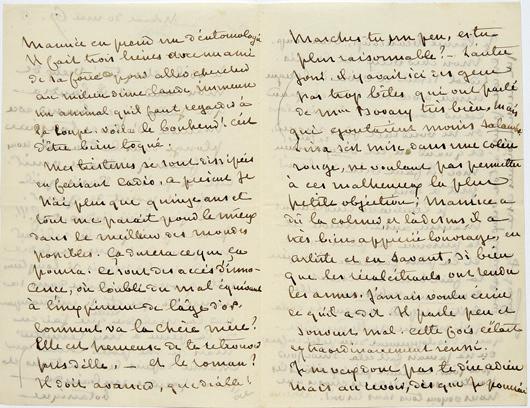 Maurice en prend un d'entomologie
Il fait trois lieues avec ma mie
de sa force pour aller chercher
au milieu d'une lande immense
un animal qu'il faut regarder à
la loupe. Voilà le bonheur! c'est
d'être bien toqué.
Mes tristesses se sont dissipées
en faisant Cadio, à présent je
n'ai plus que quinze ans et
tout me paraît pour le mieux
dans le meilleur des mondes
possibles. ça durera ce que ça
pourra. ce sont des accès d'inno-
cence, où l'oubli du mal équivaut
à l'inexpérience de l'âge d'or.
Comment va la chère mère?
Elle est heureuse de te retrouver
près d'elle, — et le roman?
Il doit avancer, que diable!
Marches-tu un peu, es-tu
plus raisonnable? — L'autre
jour, il y avait ici des gens
pas trop bêtes qui ont parlé
de Mme Bovary très bien, mais
qui goûtaient moins Salambô.
Lina s'est mise dans une colère
rouge, ne voulant pas permettre
à ces malheureux la plus
petite objection; Maurice a
dû la calmer et là dessus il a
très bien apprécié l'ouvrage, en
artiste et en savant, si bien
que les récalcitrants ont rendu
les armes. J'aurais voulu écrire
ce qu'il a dit. Il parle peu et
souvent mal. cette fois c'était
extraordinairement réussi.
Je ne veux donc pas te dire adieu
mais au revoir, dès que je pourrai